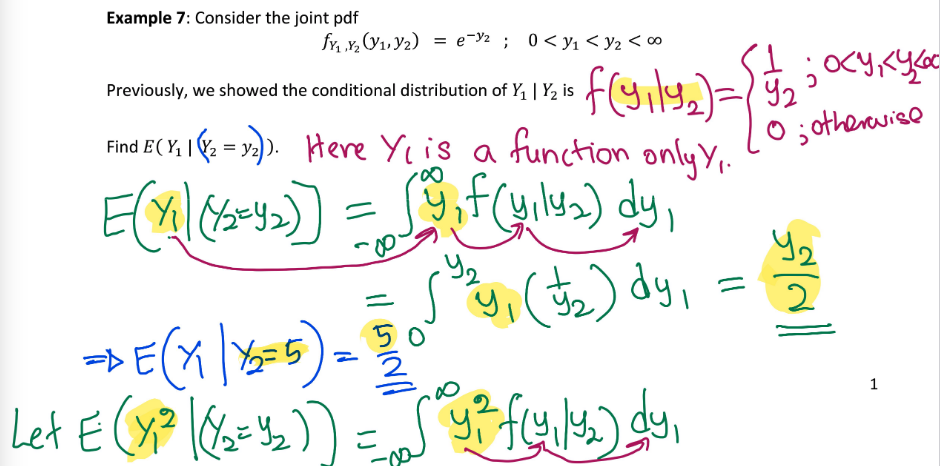 Example 7: Consider the joint pdf
f_{Y₁,Y₂}(y₁, y₂) = e^{−y₂} ; 0 < y₁ < y₂ < ∞
Previously, we showed the conditional distribution of Y₁ | Y₂ is f(y₁|y₂) = { 1/y₂ ; 0<y₁<y₂<∞
0 ; otherwise
Find E( Y₁ | (Y₂ = y₂)). Here Y₁ is a function only Y₁.
E(Y₁|(Y₂=y₂)) = ∫_{-∞}^{∞} y₁ f(y₁|y₂) dy₁
= ∫_{0}^{y₂} y₁ (1/y₂) dy₁ = y₂/2
⇒ E(Y₁ | Y₂=5) = 5/2
1
Let E(Y₁² |(Y₂=y₂)) = ∫_{-∞}^{∞} y₁² f(y₁|y₂) dy₁